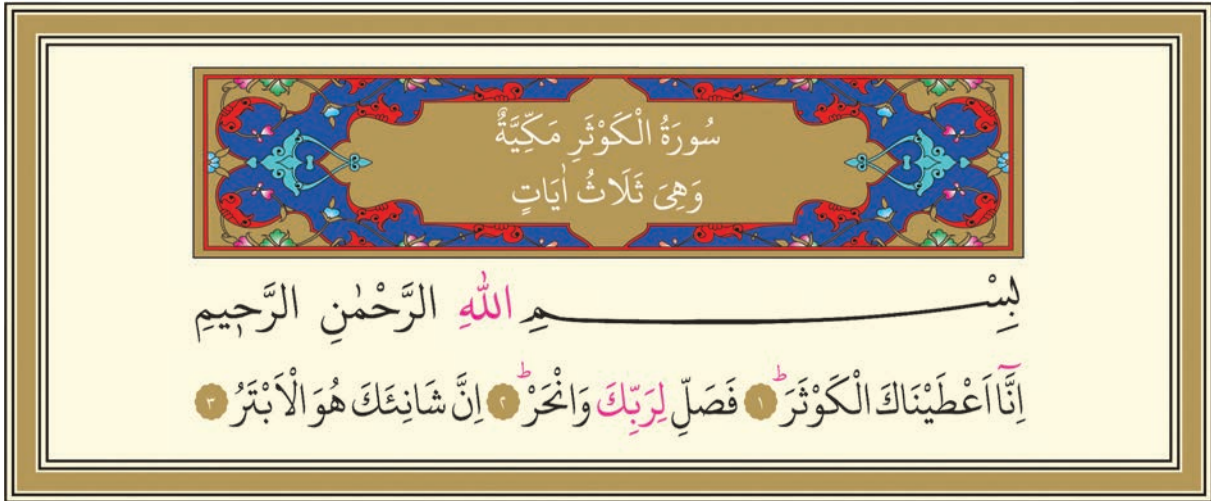 سُورَةُ الْكَوْثَرِ مَكِّيَّةٌ
وَهِىَ ثَلَاثُ اٰيَاتٍ
بِسْمِ اللّٰهِ الرَّحْمٰنِ الرَّحٖيمِ
اِنَّٓا اَعْطَيْنَاكَ الْكَوْثَرَۜ ﴿١﴾ فَصَلِّ لِرَبِّكَ وَانْحَرْۜ ﴿٢﴾ اِنَّ شَانِئَكَ هُوَ الْاَبْتَرُ ﴿٣﴾